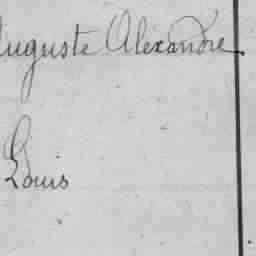 Auguste Alexandre
Louis